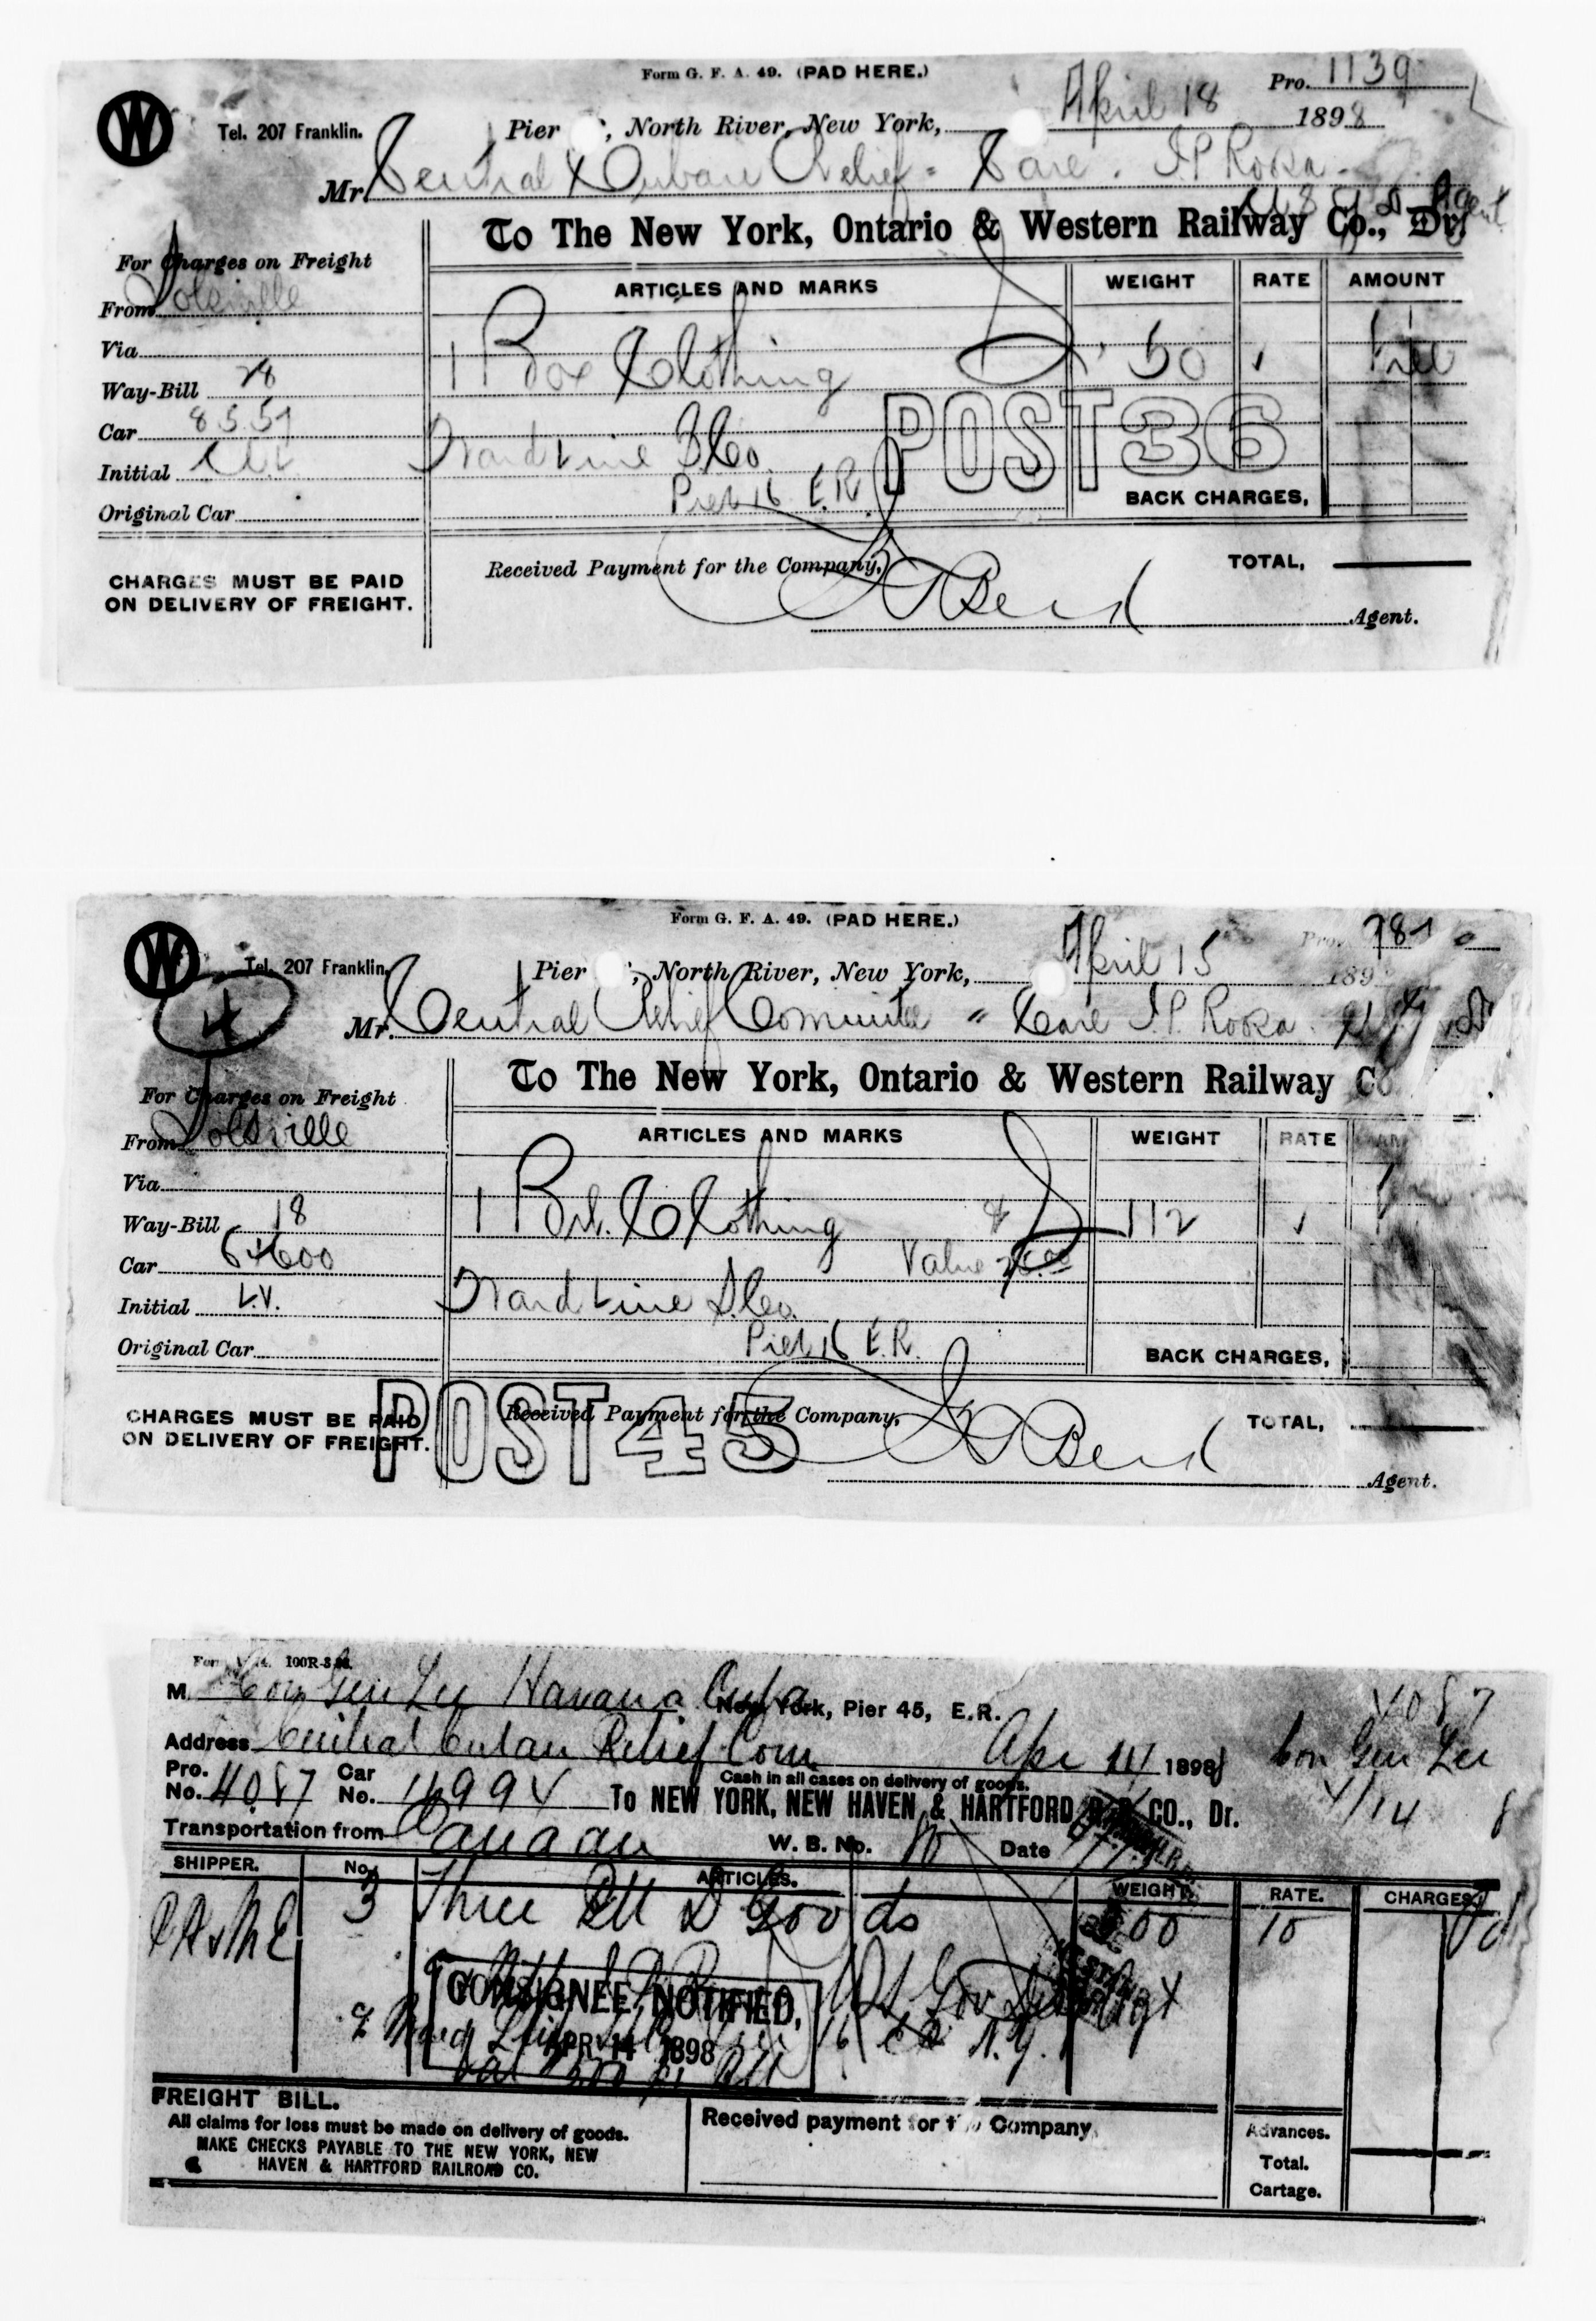 Form G. F. A. 49. (PAD HERE.)
Pro. 1139
W
Tel. 207 Franklin.
Pier , North River, New York, April 18 1898
Mr. Central Cuban Relief - Care. I.P. Rosa
Agent
To The New York, Ontario & Western Railway Co., Dr.
For Charges on Freight
From Solsville
Via
Way-Bill 28
Car
Initial
Original Car
ARTICLES AND MARKS WEIGHT RATE AMOUNT
1 Box Clothing 50 free
Ward Line S Co.
Pier 16 E.R.
POST 36
BACK CHARGES,
CHARGES MUST BE PAID
ON DELIVERY OF FREIGHT.
Received Payment for the Company,
TOTAL,
Agent.
Form G. F. A. 49. (PAD HERE.)
Pro. 781
W
Tel. 207 Franklin.
4
Pier , North River, New York, April 15 189
Mr. Central Relief Committee " Care I.P. Rosa.
To The New York, Ontario & Western Railway Co
For Charges on Freight
From Solsville
Via
Way-Bill 18
Car 64600
Initial L.V.
Original Car
ARTICLES AND MARKS WEIGHT RATE
1 Brl. Clothing 112
Value
Ward Line S.Co.
Pier 16 E.R.
BACK CHARGES,
POST 45
CHARGES MUST BE PAID
ON DELIVERY OF FREIGHT.
Received Payment for the Company,
TOTAL,
Agent.
100R-3
M. Con Gen Lee Havana Cuba
New York, Pier 45, E.R.
4087
Address Central Cuban Relief Com Apr 14 1898
Con Gen Lee
4/14 8
Pro. No. 4087 Car No. 14994
Cash in all cases on delivery of goods.
To NEW YORK, NEW HAVEN & HARTFORD R.R. CO., Dr.
Transportation from Canaan W. B. No. Date
SHIPPER. No. ARTICLES. WEIGHT. RATE. CHARGES.
3 Three Bbl D Goods 10
CONSIGNEE NOTIFIED,
APR 14 1898
16 E R N.Y.
FREIGHT BILL.
All claims for loss must be made on delivery of goods.
MAKE CHECKS PAYABLE TO THE NEW YORK, NEW
HAVEN & HARTFORD RAILROAD CO.
Received payment for the Company
Advances.
Total.
Cartage.